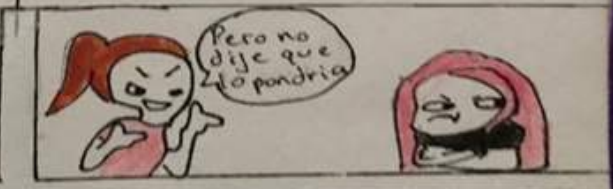 Pero no
dije que
lo pondria